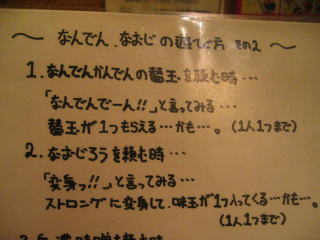 ～ なんでん、なおじの遊び方 その2 ～
1. なんでんかんでんの替玉を頼む時・・・
「なんでんでーん!!」と言ってみる・・・
替玉が1つもらえる・・・かも・・・。(1人1つまで)
2. なおじろうを頼む時・・・
「変身っ!!」と言ってみる・・・
ストロングに変身して、味玉が1つ入ってくる・・・かも・・・。
(1人1つまで)